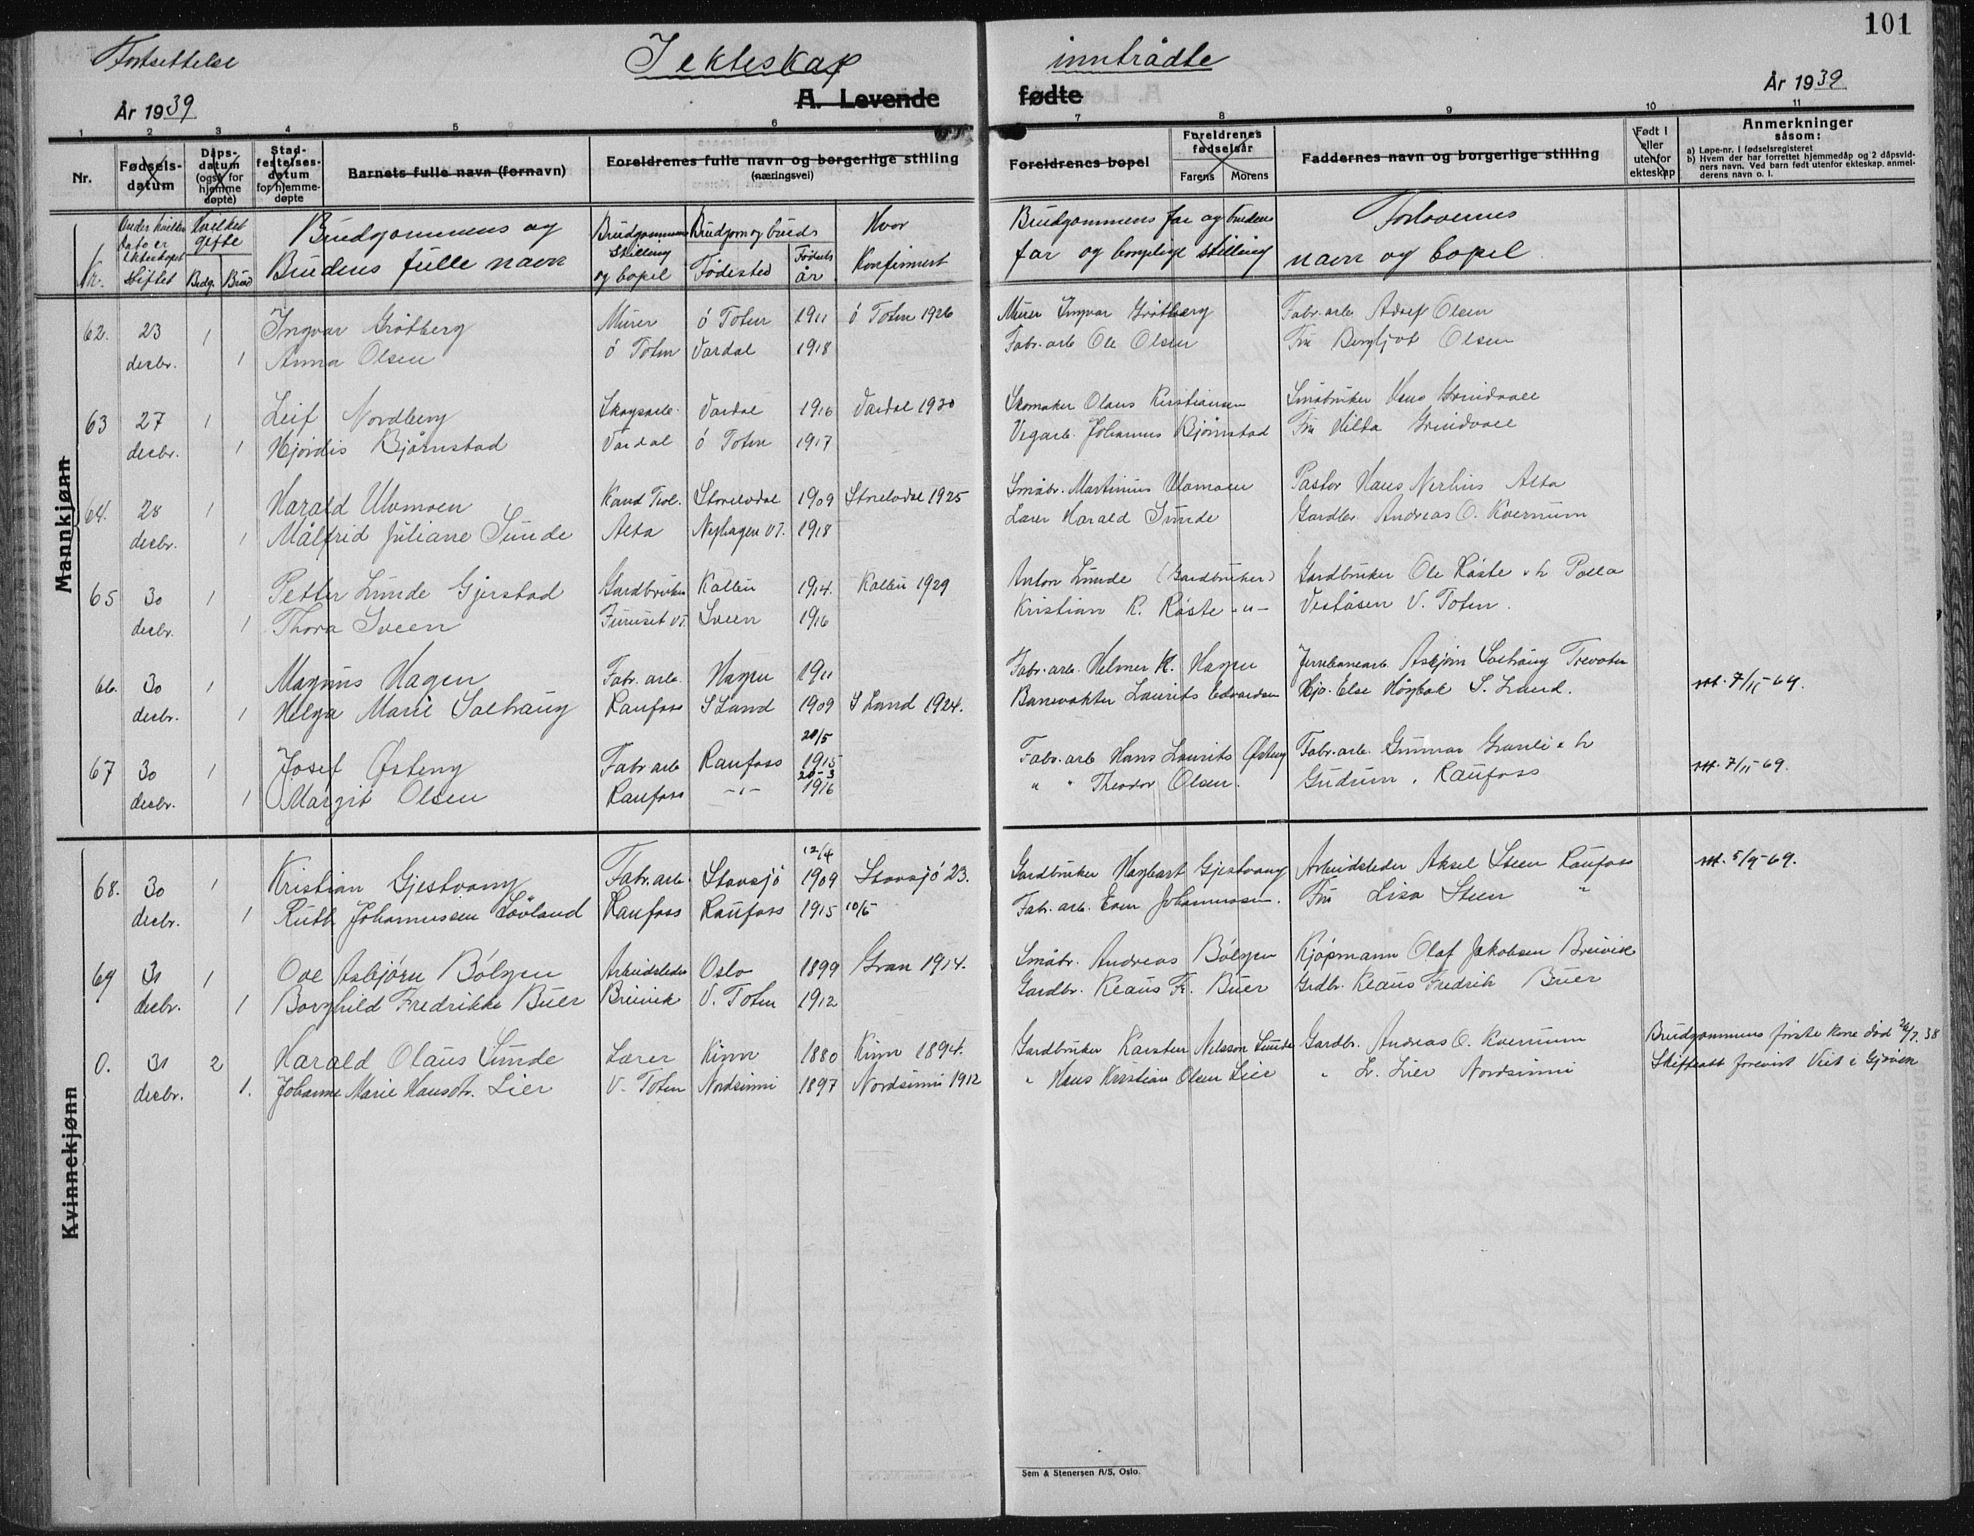 101
Fortsettelse
I ekteskap inntrådte
År 1939
A. Levende fødte
År 1939
1 2 3 4 5 6 7 8 9 10 11
Nr.
Fødsels-datum
Dåps-datum (også for hjemme døpte)
Stad-festelses-datum for hjemme-døpte
Barnets fulle navn (fornavn)
Foreldrenes fulle navn og borgerlige stilling (næringsvei)
Foreldrenes bopel
Foreldrenes fødselsår
Farens Morens
Faddernes navn og borgerlige stilling
Født i eller utenfor ekteskap
Anmerkninger såsom:
a) Løpe-nr. i fødselsregisteret
b) Hvem der har forrettet hjemmedåp og 2 dåpsvidners navn. Ved barn født utenfor ekteskap, anmelderens navn o. l.
Nr.
Under hvilken dato er ekteskapet stiftet
Hvilket gifte
Brdg. Brud
Brudgommens og Brudens fulle navn
Brudgommens Stilling og bopel
Brudgom og bruds
Fødested
Fødsels år
Hvor Konfirmert
Brudgommens far og brudens far og borgerlige stilling
Forlovernes navn og bopel
Mannkjønn
62. 23 1 Ingvar Grøtberg Murer Ø Toten 1911 Ø Toten 1926 Murer Ingvar Grøtberg Fabr. arb. Adolf Olsen
desbr. 1 Anna Olsen Ø Toten Vardal 1918 Fabr. arb Ole Olsen Fru Bergljot Olsen
63 27 1 Leif Nordberg Skogsarb. Vardal 1916 Vardal 1930 Skomaker Olaus Kristiansen Småbruker Hans Grindvoll
desbr. 1 Hjördis Bjørnstad Vardal Ø Toten 1917 Vegarb. Johannes Bjørnstad Fru Hilda Grindvoll
64. 28 1 Harald Ulvmoen Kand Teol. Storelvdal 1909 Storelvdal 1925 Småbr. Martinus Ulvmoen Pastor Hans Nerhus Alta
desbr. 1 Målfrid Juliane Sunde Alta Nyhagen V T. 1918 Lærer Harald Sunde Gardbr. Andreas O. Kvernum
65 30 1 Petter Lunde Gjerstad Gardbruker Kolbu 1914. Kolbu 1929 Anton Lunde (Gardbruker) Gardbruker Ole Røste
desbr. 1 Thora Sveen Furuset VT. Sveen 1916 Kristian K. Røste -"- Veståsen V. Toten.
66. 30 1 Magnus Hagen Fabr. arb. Hagen 1911 Fabr. arb. Helmer K. Hagen Jernbanearb. Asbjørn Solhaug
desbr. 1 Helga Marie Solhaug Raufoss S Land 1909 S Land 1924. Banevokter Laurits Edvardsen S. Land.
att. 7/11-69.
67 30 1 Josef Østeng Fabr arb Raufoss 20/5 1915 Fabr. arb Hans Laurits Østeng Fabr. arb. Gunnar Granli
desbr. 1 Margit Olsen Raufoss -"- 20-3 1916 " " Theodor Olsen. Gudrun. Raufoss
att. 7/11-69.
68. 30 1 Kristian Gjestvang Fabr. arb. Stavsjø 12/4 1909 Stavsjø 23. Gardbruker Hagbart Gjestvang Arbeidsleder Aksel Steen Raufoss
att. 5/9-69.
desbr. 1 Ruth Johannessen Løvland Raufoss Raufoss 1915 10/5 Fabr. arb. Even Johannessen. Fru Lisa Steen "
69 31 1 Ove Asbjørn Bölgen Arbeidsleder Oslo 1899 Gran 1914. Småbr. Andreas Bölgen Kjøpmann Olaf Jakobsen Breivik
desbr. 1 Borghild Fredrikke Buer Breivik V. Toten 1912 Gardbr. Klaus Fr. Buer Grdbr. Klaus Fredrik Buer
0. 31 2 Harald Olaus Sunde Lærer Kinn 1880 Kinn 1894. Gardbruker Karsten Nelsson Sunde Gardbr. Andreas O. Kvernum Brudgommens første kone død 38
desbr. 1. Johanne Marie Hansdtr. Lier V. Toten Nordsinni 1897 Nordsinni 1912 " Hans Kristian Olsen Lier " L. Lier Nordsinni Skifteatt forevist
Kvinnekjønn
Sem & Stenersen A/S, Oslo.